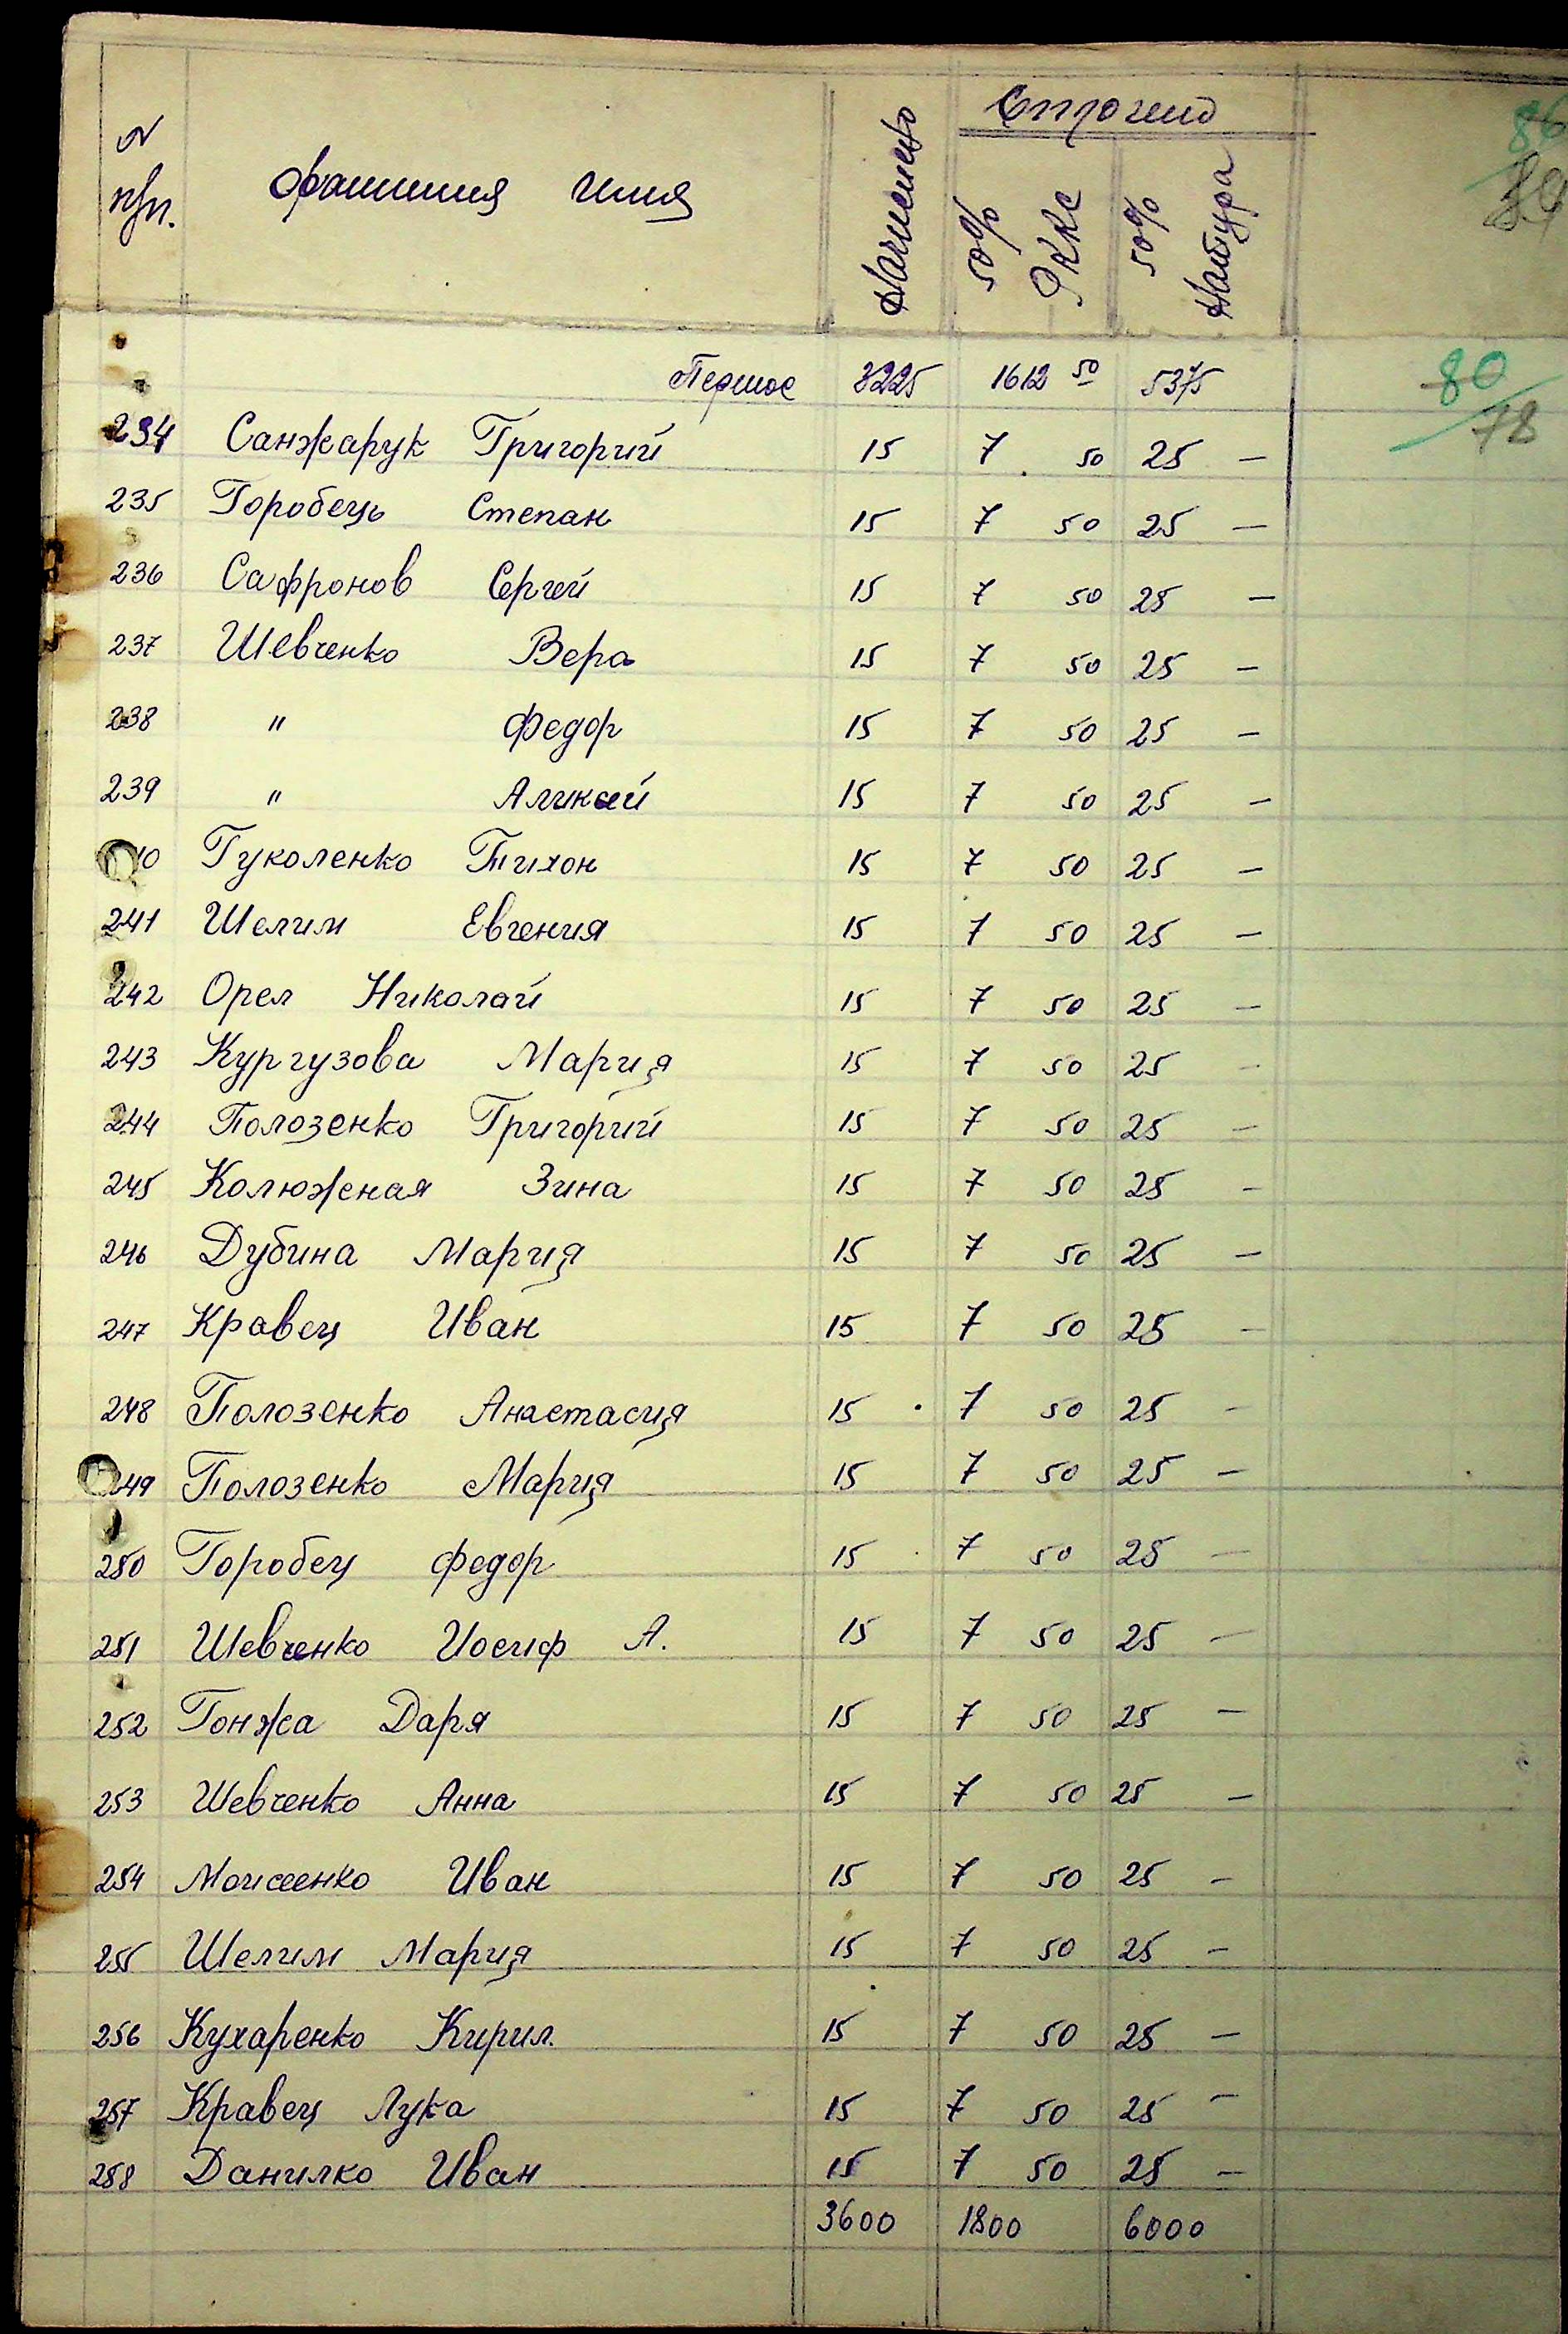 N п/п. Фамилия имя Начислено Строчено
50% РККС 50% Натура
86
84
Перенос 3225 1612 50 5375 80
78
234 Санжарук Григорий 15 7 50 25 —
235 Горобець Степан 15 7 50 25 —
236 Сафронов Сергей 15 7 50 25 —
237 Шевченко Вера 15 7 50 25 —
238 " Федор 15 7 50 25 —
239 " Аликсей 15 7 50 25 —
40 Гуколенко Тихон 15 7 50 25 —
241 Шелим Евгения 15 7 50 25 —
242 Орел Николай 15 7 50 25 —
243 Кургузова Мария 15 7 50 25 —
244 Полозенко Григорий 15 7 50 25 —
245 Колюженая Зина 15 7 50 25 —
246 Дубина Мария 15 7 50 25 —
247 Кравец Иван 15 7 50 25 —
248 Полозенко Анастасия 15 7 50 25 —
249 Полозенко Мария 15 7 50 25 —
250 Горобец Федор 15 7 50 25 —
251 Шевченко Иосиф А. 15 7 50 25 —
252 Гонжа Даря 15 7 50 25 —
253 Шевченко Анна 15 7 50 25 —
254 Моисеенко Иван 15 7 50 25 —
255 Шелим Мария 15 7 50 25 —
256 Кухаренко Кирил. 15 7 50 25 —
257 Кравец Лука 15 7 50 25 —
258 Данилко Иван 15 7 50 25 —
3600 1800 6000